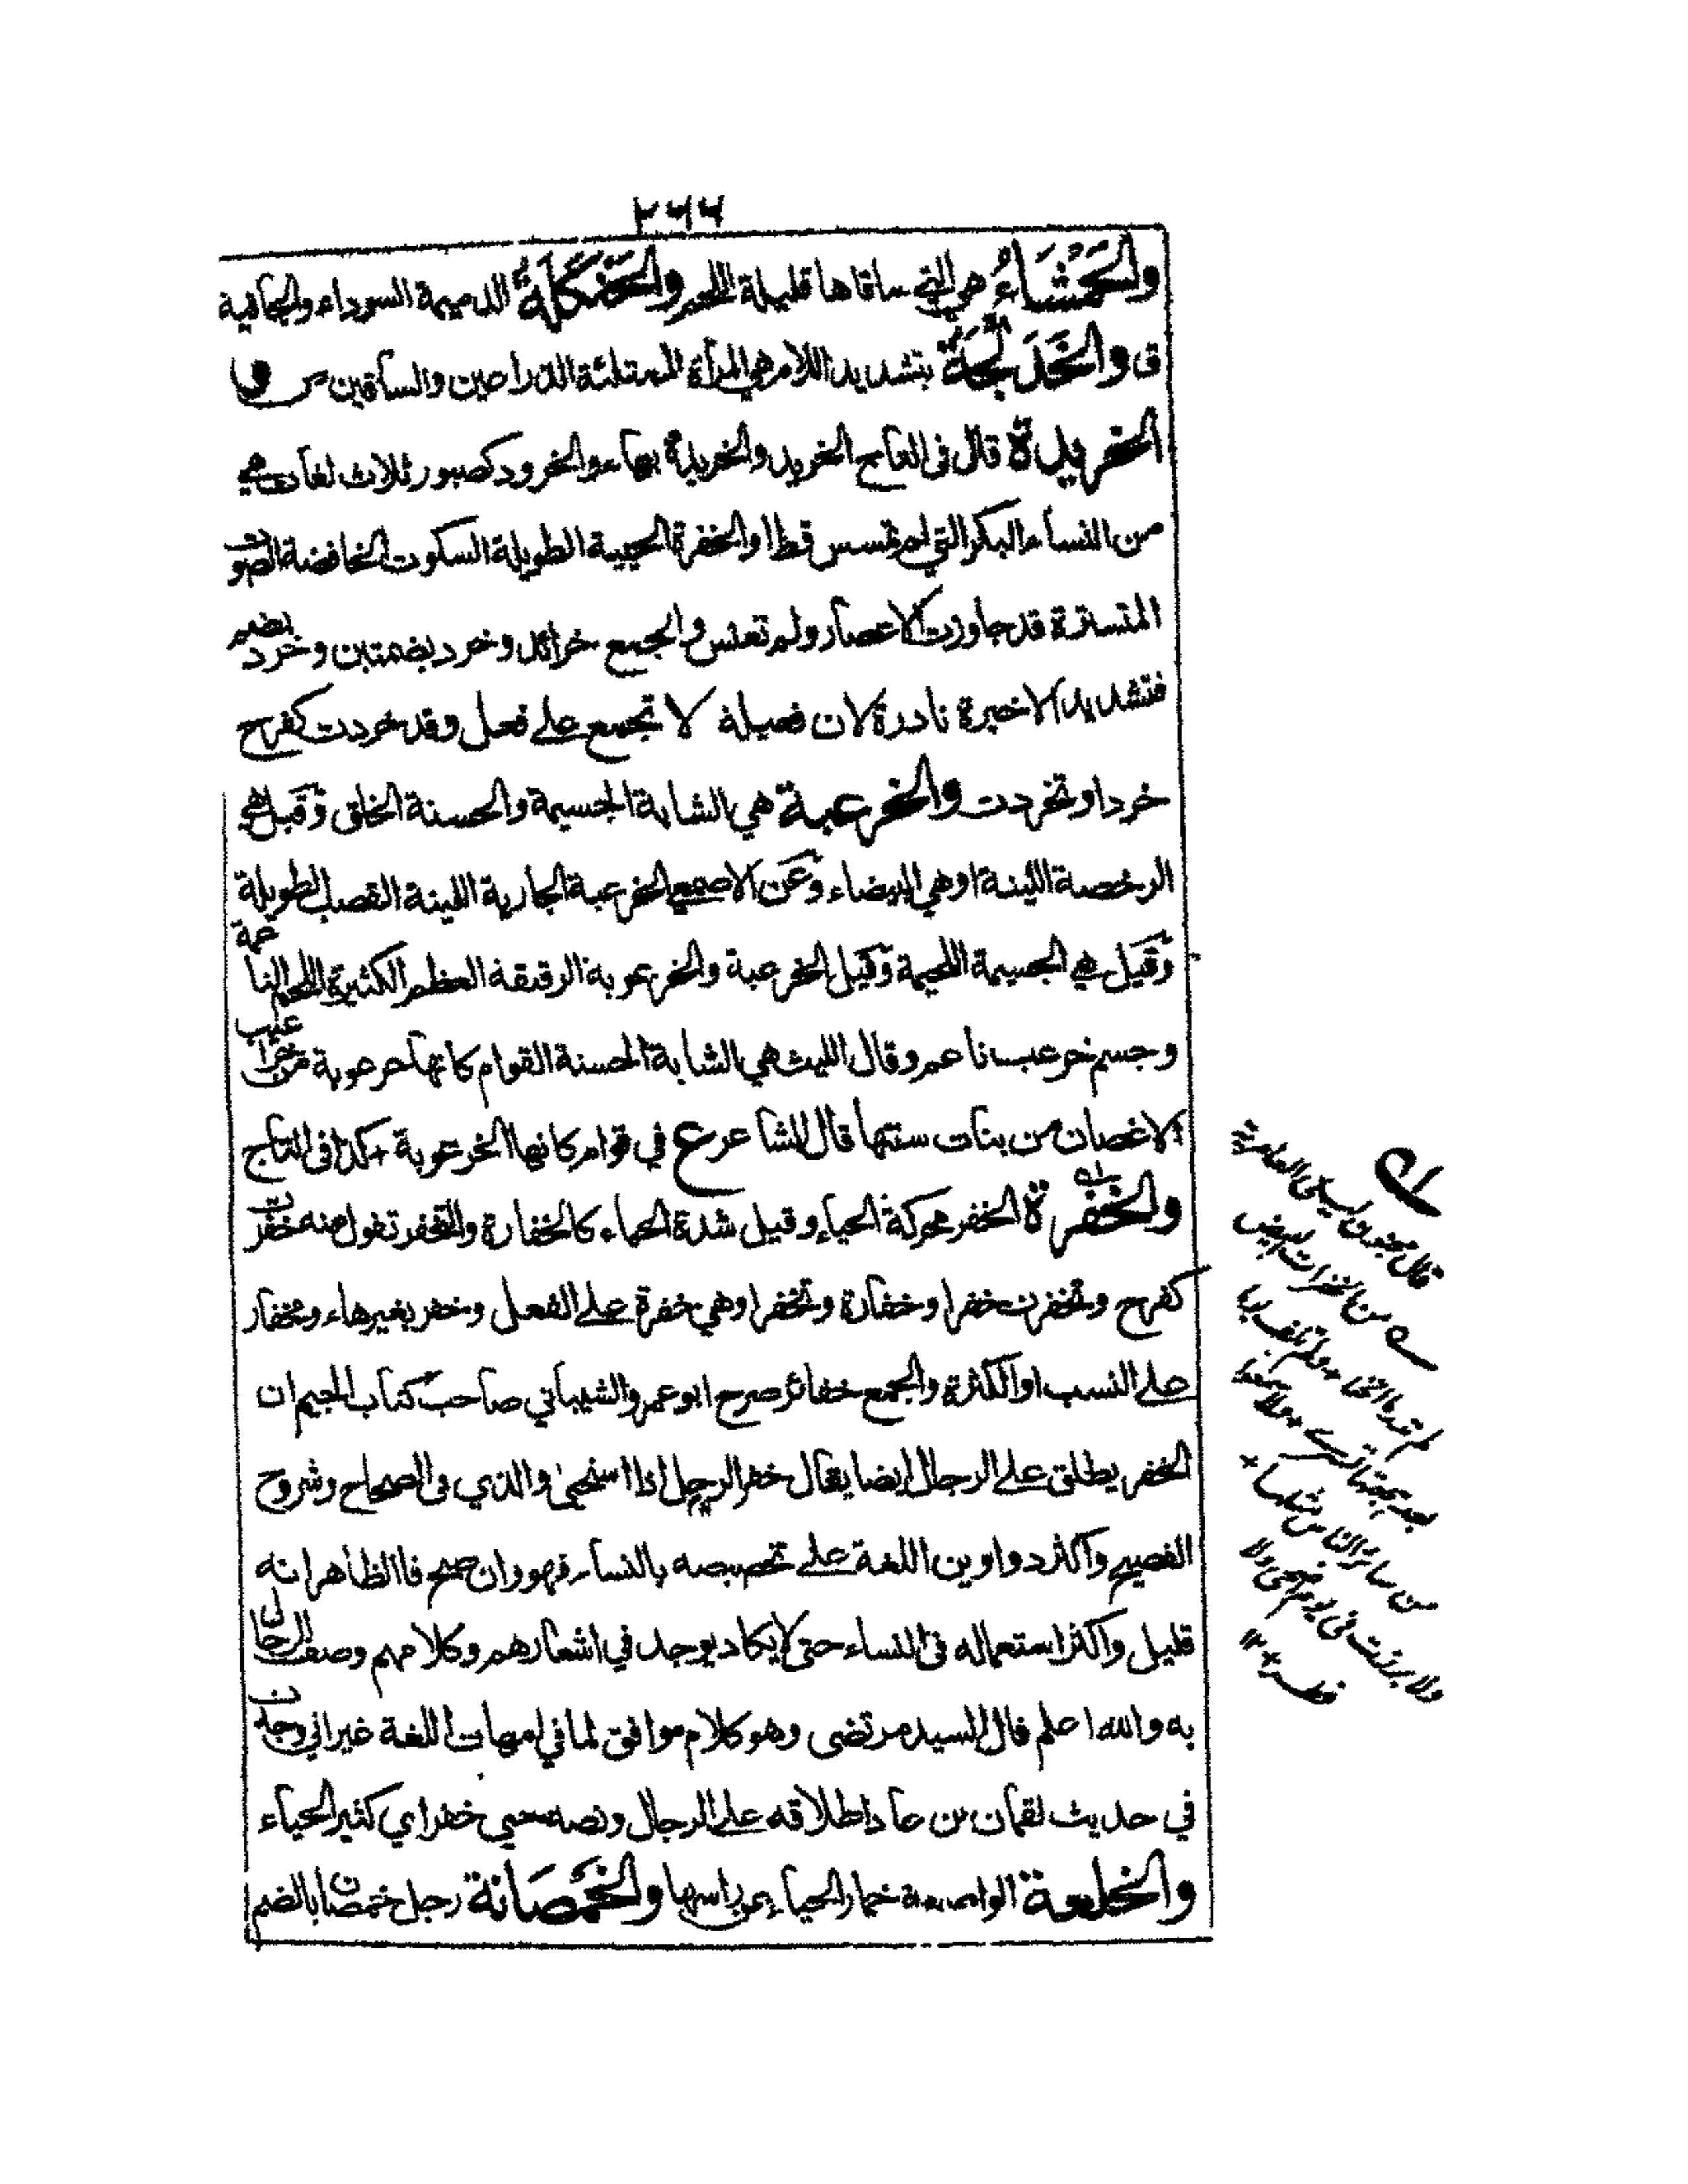 ٢٦٦
والحَمْشَاءُ هي التي ساقاها قليلة اللحم والحَنْكَلَةُ الدميمة السوداء والجافية
ق والخَدَلَّجَةُ بتشديد اللام هي المرأة الممتلئة الذراعين والساقين س و
الخريدة قال في التاج الخريد والخريدة بهاء والخرود كصبور ثلاث لغات هي
من النساء البكر التي لم تمسس قط او الخفرة الحيية الطويلة السكوت الخافضة الصوت
المتسترة قد جاوزت الاعصار ولم تعنس والجمع خرائد وخرد بضمتين وخرد بضم
فتشديد الاخيرة نادرة لان فعيلة لا تجمع على فعل وقد خردت كفرح
خردا وتخردت والخرعبة هي الشابة الجسيمة والحسنة الخلق وقيل هي
الرخصة اللينة او هي البيضاء وعن الاصمعي الخرعبة الجارية اللينة القصب الطويلة
وقيل هي الجسيمة اللحيمة وقيل الخرعبة والخرعوبة الرقيقة العظم الكثيرة اللحم الناعمة
وجسم خرعب ناعم وقال الليث هي الشابة الحسنة القوام كانها خرعوبة من خراعيب
الاغصان من بنات سنتها قال الشاعر ع في قوام كانها الخرعوبة + كذا في التاج
والخفرة الخفر محركة الحياء وقيل شدة الحياء كالخفارة والتخفر تقول منه خفرت
كفرح وتخفرت خفرا وخفارة وتخفرا وهي خفرة على الفعل وخفر بغير هاء ومخفار
على النسب او الكثرة والجمع خفائر صرح ابو عمرو الشيباني صاحب كتاب الجيم ان
الخفر يطلق على الرجال ايضا يقال خفر الرجل اذا استحيى والذي في الصحاح وشروح
الفصيح واكثر دواوين اللغة على تخصيصه بالنساء فهو وان صح فالظاهر انه
قليل واكثر استعماله في النساء حتى لا يكاد يوجد في اشعارهم وكلامهم وصف الرجال
به والله اعلم قال السيد مرتضى وهو كلام موافق لما في امهات اللغة غير اني وجدت
في حديث لقمان بن عاد اطلاقه على الرجال ونصه حيي خفر اي كثير الحياء
والخليعة الواضعة خمار الحياء عن راسها والخَمْصَانة رجل خمصان بالضم
قال مجنون ليلى العامرية
من الخفرات البيض
لم تدر ما الخنا + ولم تلف
بعد هجعتها ترى + ولا سمعت
من سائر الناس مثلها +
ولا برزت في يوم اضحى ولا
فطر + +